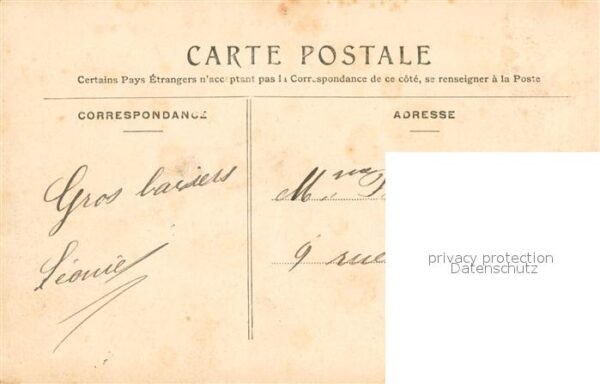 CARTE POSTALE
Certains Pays Étrangers n'acceptant pas la Correspondance de ce côté, se renseigner à la Poste
CORRESPONDANCE
ADRESSE
Gros baisers
Léonie
Mme
9 rue
privacy protection
Datenschutz